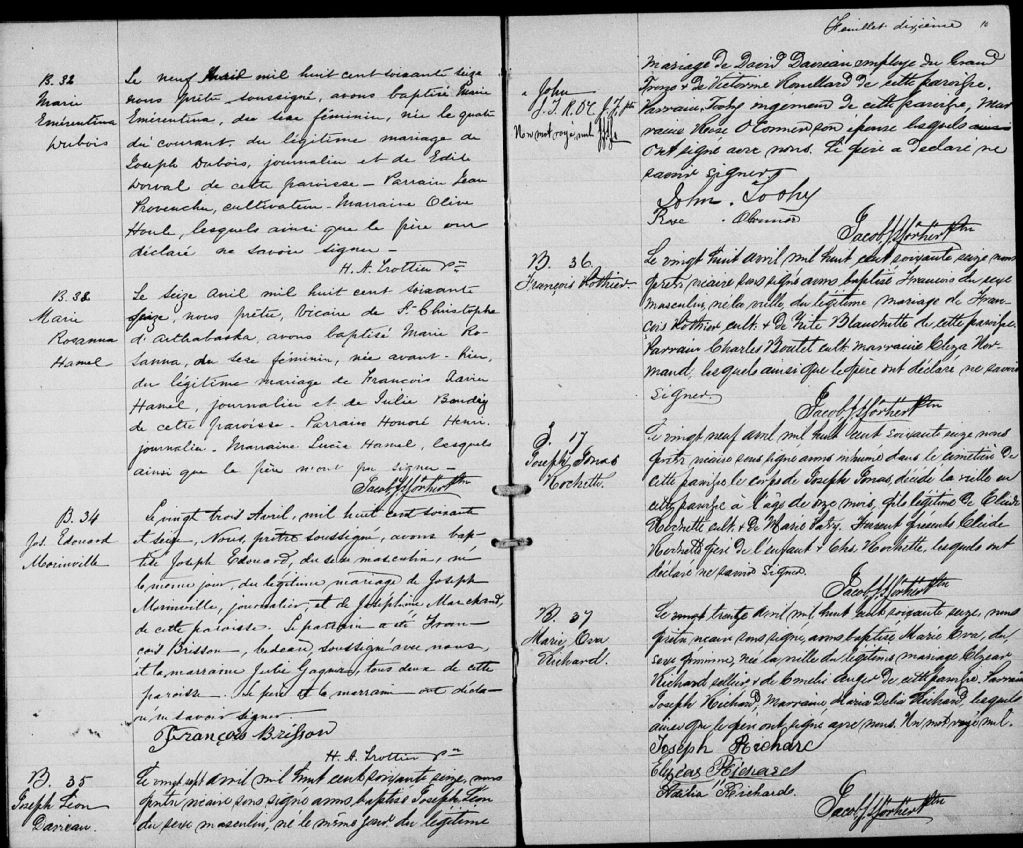 B. 32
Marie
Emérentina
Dubois
Le neuf Avril mil huit cent soixante seize
nous prêtre soussigné, avons baptisé Marie
Emérentina, du sexe féminin, née le quatre
du courant du légitime mariage de
Joseph Dubois, journalier et de Edile
Dorval de cette paroisse - Parrain Jean
Provencher, cultivateur - Marraine Olive
Houle, lesquels ainsi que le père ont
déclaré ne savoir signer -
H. A. Trottier ptre
B. 33
Marie
Rosanna
Hamel
Le seize Avril mil huit cent soixante
seize, nous prêtre, Vicaire de St Christophe
d'Arthabaska, avons baptisé Marie Ro-
sanna, du sexe féminin, née avant-hier,
du légitime mariage de François Xavier
Hamel, journalier et de Julie Baudry
de cette paroisse - Parrain Honoré Henri
journalier - Marraine Lucie Hamel, lesquels
ainsi que le père n'ont pu signer -
B. 34
Jos. Edouard
Morinville
Le vingt trois Avril, mil huit cent soixante
et seize, Nous, prêtre soussigné, avons bap-
tisé Joseph Edouard, du sexe masculin, né
le même jour, du légitime mariage de Joseph
Morinville, journalier, et de Joséphine Marchand,
de cette paroisse. Le parrain a été Fran-
çois Brisson, bedeau, soussigné avec nous,
et la marraine Julie Gagnon, tous deux de cette
paroisse - Le père et la marraine ont décla-
ré ne savoir signer.
François Brisson
H. A. Trottier ptre
B. 35
Joseph Léon
Daveau.
Le vingt sept avril mil huit cent soixante seize, nous
prêtre vicaire sous signé avons baptisé Joseph Léon
du sexe masculin, né le même jour du légitime
Feuillet dixième 10
mariage de David Daveau employé du Grand
Tronc & de Victorine Rouillard de cette paroisse.
Parrain, John
Toohy ingenieur de cette paroisse, Mar
raine Rose O'Connor son épouse lesquels
Ont signé avec nous. Le père a déclaré ne
savoir signer
John Toohy
Rose O'Connor
B. 36
François Pothier
Le vingt huit avril mil huit cent soixante seize nous
prêtre vicaire sous signé avons baptisé François du sexe
masculin, né la veille, du légitime mariage de Fran-
çois Pothier cult. & de Zoé Blanchette de cette paroisse.
Parrain Charles Boutet cult. marraine Eliza Nor-
mand, lesquels ainsi que le père ont déclaré ne savoir
signer
S. 17
Joseph Jonas
Rochette.
Le vingt neuf avril mil huit cent soixante seize nous
prêtre vicaire sous signé avons inhumé dans le cimetière de
cette paroisse le corps de Joseph Jonas, décédé la veille en
cette paroisse à l'âge de onze mois, fils légitime de Elide
Rochette cult. & de Marie Patry. Furent présents Elide
Rochette père de l'enfant & Chs Rochette, lesquels ont
déclaré ne savoir signer.
B. 37
Marie Eva
Richard.
Le trente avril mil huit cent soixante seize, nous
prêtre vicaire sous signé, avons baptisé Marie Eva, du
sexe féminin, née la veille du légitime mariage Elzear
Richard, sellier & de Emelie Auger de cette paroisse, Parrain
Joseph Richard, Marraine Maria Delia Richard, lesquels
ainsi que le père ont signé avec nous. Un mot rayé nul.
Joseph Richard
Elzéar Richard
Délia Richard.